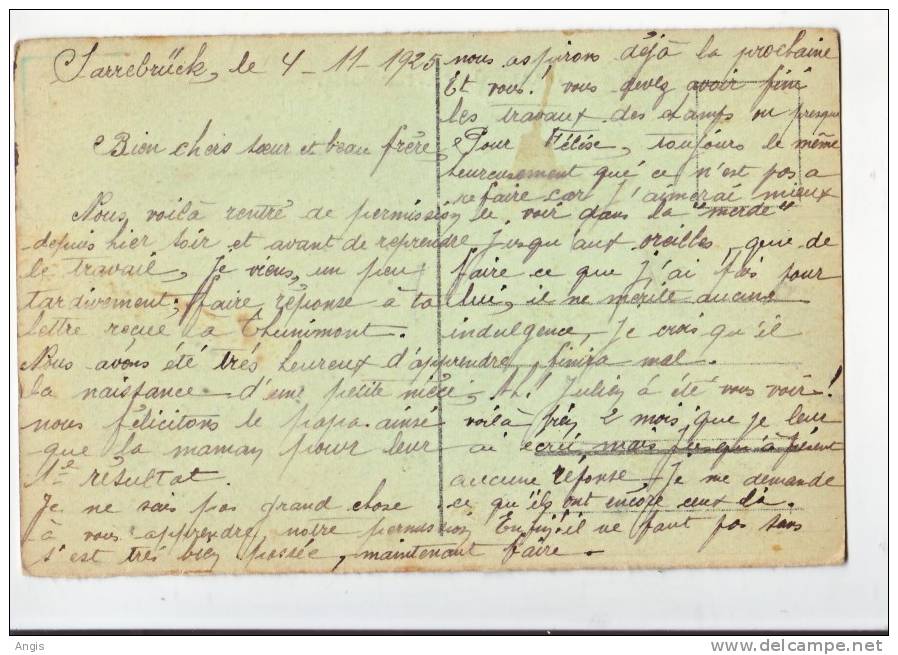 Sarrebrück, le 4 - 11 - 1925
Bien chers sœur et beau frère,
Nous voilà rentré de permission
depuis hier soir et avant de reprendre
le travail, Je viens, un peu
tardivement, faire réponse à ta
lettre reçue à Thunimont.
Nous avons été trés heureux d'apprendre
la naissance d'une petite nièce,
nous félicitons le papa ainsi
que la maman pour leur
1er résultat.
Je ne sais pas grand chose
à vous apprendre, notre permission
s'est trés bien passée, maintenant
nous aspirons déjà la prochaine
Et vous. vous devez avoir fini
les travaux des champs ou presque
Pour Félése, toujours le même
heureusement qué ce n'est pas a
refaire car J'aimerai mieux
le voir dans la "merde"
Jusqu'aux oreilles, que de
faire ce que j'ai fais pour
lui, il ne mérite aucune
indulgence, Je crois qu'il
finira mal.
Ah! Julien à été vous voir!
voilà près 2 mois, que je leur
ai écrit, mais jusqu'à présent
aucune réponse. Je me demande
ce qu'ils ont encore ceux là.
Enfin, il ne faut pas s'en
faire.
Angis
www.delcampe.net